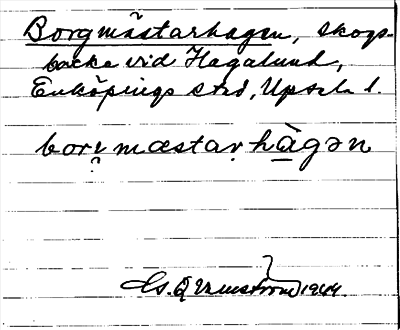 Borgmästarhagen, skogs-
backe vid Hagalund,
Enköpings stad, Upsala l.
borımæstaṛhàgən
1944.